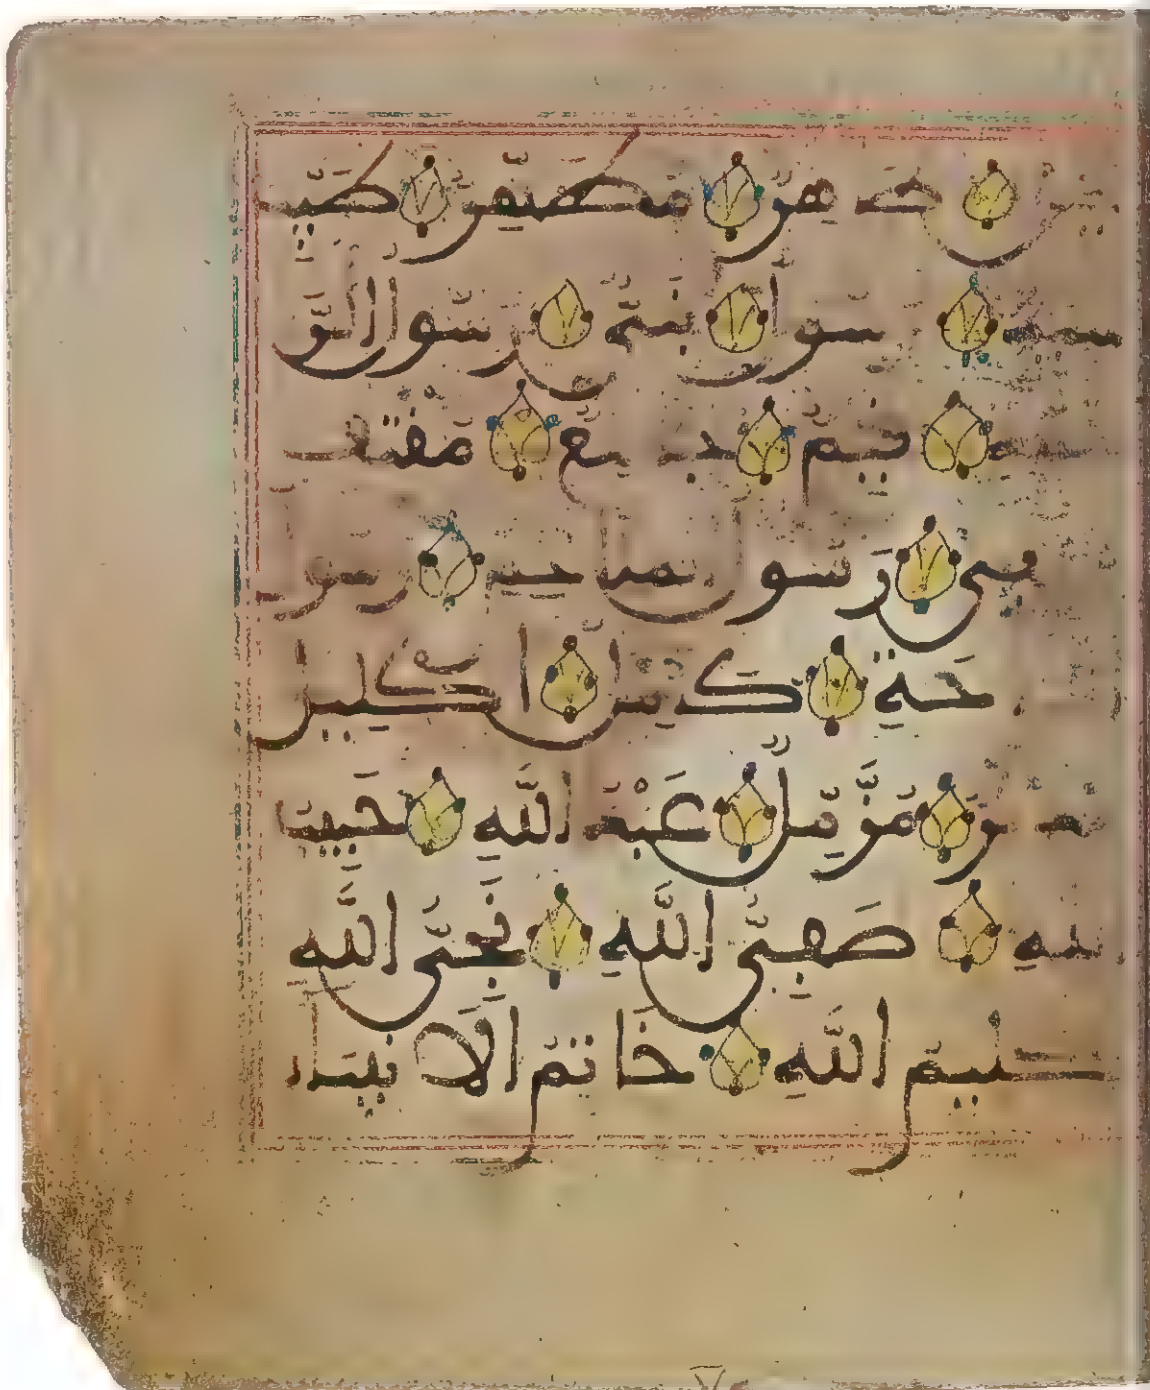 طَهِرٌ مُطَهَّرٌ طَيِّبٌ
رَسُولٌ نَبِيٌّ رَسُولُ الرَّ
قَيِّمٌ جَامِعٌ مُقْتَفٍ
رَسُولُ الملاحم رسول
حَةِ كَامِلٌ اِكْلِيلٌ
مُزَّمِّلٌ عَبْدُ اللَّهِ حَبِيبُ
اللهِ صَفِيُّ اللَّهِ نَجِيُّ اللَّهِ
كَلِيمُ اللَّهِ خَاتَمُ الانبيا